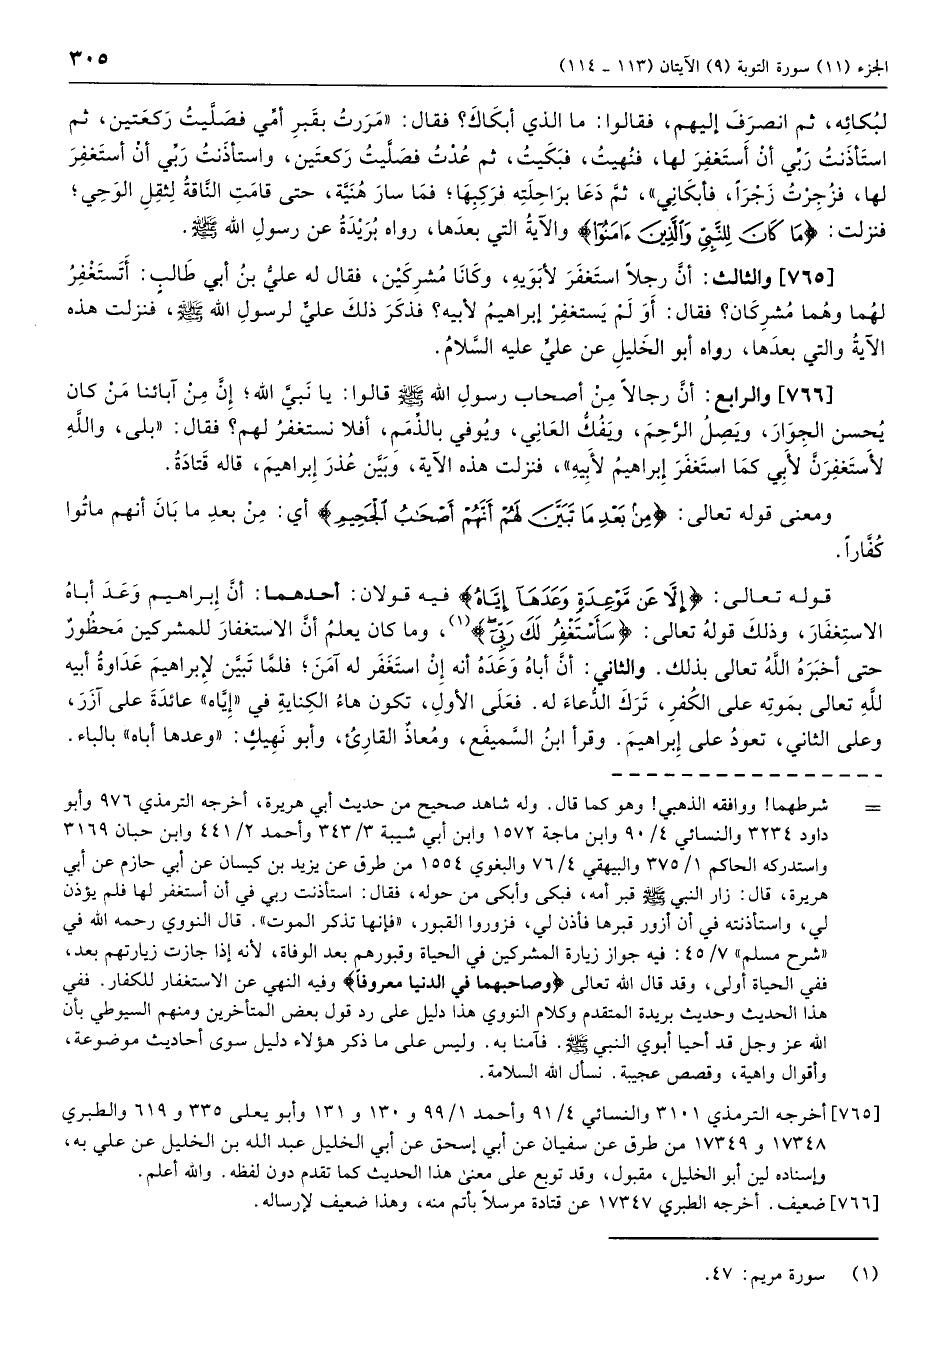 الجزء (١١) سورة التوبة (٩) الآيتان (١١٣ ـ ١١٤) ٣٠٥
لبُكائِه، ثم انصرَفَ إليهم، فقالوا: ما الذي أبكَاكَ؟ فقال: «مَرَرتُ بقَبرِ أمِّي فصَلَّيتُ ركعَتين، ثم
استَأذَنتُ رَبِّي أنْ أَستَغفِرَ لها، فنُهيتُ، فبَكَيتُ، ثم عُدْتُ فصَلَّيتُ ركعتَين، واستأذَنتُ رَبِّي أنْ أستَغفِرَ
لها، فزُجِرْتُ زَجْرَاً، فأبكَاني»، ثمَّ دَعَا برَاحِلَتِه فرَكِبَهَا؛ فمَا سارَ هُنَيَّة، حتى قامَتِ النَّاقةُ لِثقلِ الوَحي؛
فنزلت: ﴿مَا كَانَ لِلنَّبِيِّ وَٱلَّذِينَ ءَامَنُوٓا﴾ والآيةُ التي بعدَها، رواه بُرَيْدَةُ عن رسولِ الله ﷺ.
[٧٦٥] والثالث: أنَّ رجلاً استَغفَرَ لأبَوَيه، وكَانَا مُشرِكَيْن، فقال له عليُّ بنُ أبي طَالبٍ: أتَستَغْفِرُ
لهُما وهُما مُشرِكَان؟ فقال: أوَ لَمْ يَستغفِرْ إبراهيمُ لأبيه؟ فذكَرَ ذلكَ عليٌّ لرسولِ الله ﷺ، فنزلت هذه
الآيةُ والتي بعدَها، رواه أبو الخَليلِ عن عليٍّ عليه السَّلامُ.
[٧٦٦] والرابع: أنَّ رجالاً مِنْ أصحاب رسولِ الله ﷺ قالوا: يا نَبيَّ الله؛ إنَّ مِنْ آبائنا مَنْ كان
يُحسن الجِوَارَ، ويَصِلُ الرَّحِمَ، ويَفُكُّ العَاني، ويُوفي بالذِّمَم، أفلا نستغفرُ لهم؟ فقال: «بلى، واللَّهِ
لأَستَغفِرَنَّ لأبي كمَا استَغفَرَ إبراهيمُ لأبيهِ»، فنزلت هذه الآية، وَبَيَّن عُذرَ إبراهيمَ، قاله قَتادَةُ.
ومعنى قوله تعالى: ﴿مِنْ بَعْدِ مَا تَبَيَّنَ لَهُمْ أَنَّهُمْ أَصْحَٰبُ ٱلْجَحِيمِ﴾ أي: مِنْ بعدِ ما بَانَ أنهم ماتُوا
كُفَّاراً.
قوله تعالى: ﴿إِلَّا عَن مَّوْعِدَةٍ وَعَدَهَآ إِيَّاهُ﴾ فيه قولان: أحدهما: أنَّ إبراهيم وَعَدَ أباهُ
الاستِغفَارَ، وذلكَ قولهُ تعالى: ﴿سَأَسْتَغْفِرُ لَكَ رَبِّيٓ﴾(١)، وما كان يعلمُ أنَّ الاستغفارَ للمشركين مَحظُورٌ
حتى أخبَرَهُ اللَّهُ تعالى بذلك. والثاني: أنَّ أباهُ وَعَدَهُ أنه إنْ استَغفَر له آمَنَ؛ فلمَّا تَبيَّن لإبراهيمَ عَدَاوةُ أبيه
للَّهِ تعالى بمَوتِه على الكُفرِ، تَرَكَ الدُّعاءَ له. فعَلَى الأولِ، تكون هاءُ الكِنايةِ في «إيَّاه» عائدَةً على آزَرَ،
وعلى الثاني، تعودُ على إبراهيمَ. وقرأ ابنُ السَّميفَع، ومُعاذٌ القارِئُ، وأبو نَهيكٍ: «وعدها أباه» بالباء.
= شرطهما! ووافقه الذهبي! وهو كما قال. وله شاهد صحيح من حديث أبي هريرة، أخرجه الترمذي ٩٧٦ وأبو
داود ٣٢٣٤ والنسائي ٤/ ٩٠ وابن ماجة ١٥٧٢ وابن أبي شيبة ٣/ ٣٤٣ وأحمد ٢/ ٤٤١ وابن حبان ٣١٦٩
واستدركه الحاكم ١/ ٣٧٥ والبيهقي ٤/ ٧٦ والبغوي ١٥٥٤ من طرق عن يزيد بن كيسان عن أبي حازم عن أبي
هريرة، قال: زار النبي ﷺ قبر أمه، فبكى وأبكى من حوله، فقال: استأذنت ربي في أن أستغفر لها فلم يؤذن
لي، واستأذنته في أن أزور قبرها فأذن لي، فزوروا القبور، «فإنها تذكر الموت». قال النووي رحمه الله في
«شرح مسلم» ٧/ ٤٥: فيه جواز زيارة المشركين في الحياة وقبورهم بعد الوفاة، لأنه إذا جازت زيارتهم بعد،
ففي الحياة أولى، وقد قال الله تعالى ﴿وصاحبهما في الدنيا معروفاً﴾ وفيه النهي عن الاستغفار للكفار. ففي
هذا الحديث وحديث بريدة المتقدم وكلام النووي هذا دليل على رد قول بعض المتأخرين ومنهم السيوطي بأن
الله عز وجل قد أحيا أبوي النبي ﷺ. فآمنا به. وليس على ما ذكر هؤلاء دليل سوى أحاديث موضوعة،
وأقوال واهية، وقصص عجيبة. نسأل الله السلامة.
[٧٦٥] أخرجه الترمذي ٣١٠١ والنسائي ٤/ ٩١ وأحمد ١/ ٩٩ و ١٣٠ و ١٣١ وأبو يعلى ٣٣٥ و ٦١٩ والطبري
١٧٣٤٨ و ١٧٣٤٩ من طرق عن سفيان عن أبي إسحق عن أبي الخليل عبد الله بن الخليل عن علي به،
وإسناده لين أبو الخليل، مقبول، وقد توبع على معنىٰ هذا الحديث كما تقدم دون لفظه. والله أعلم.
[٧٦٦] ضعيف. أخرجه الطبري ١٧٣٤٧ عن قتادة مرسلاً بأتم منه، وهذا ضعيف لإرساله.
(١) سورة مريم: ٤٧.